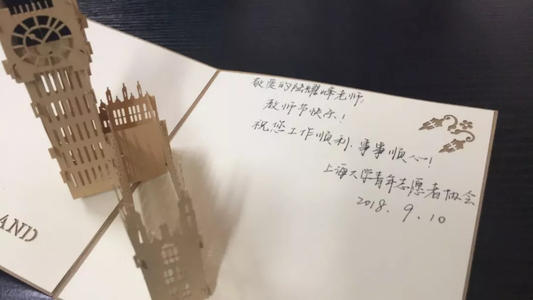 敬爱的陆耀峰老师:
教师节快乐!
祝您工作顺利,事事顺心!
上海大学青年志愿者协会
2018.9.10
AND